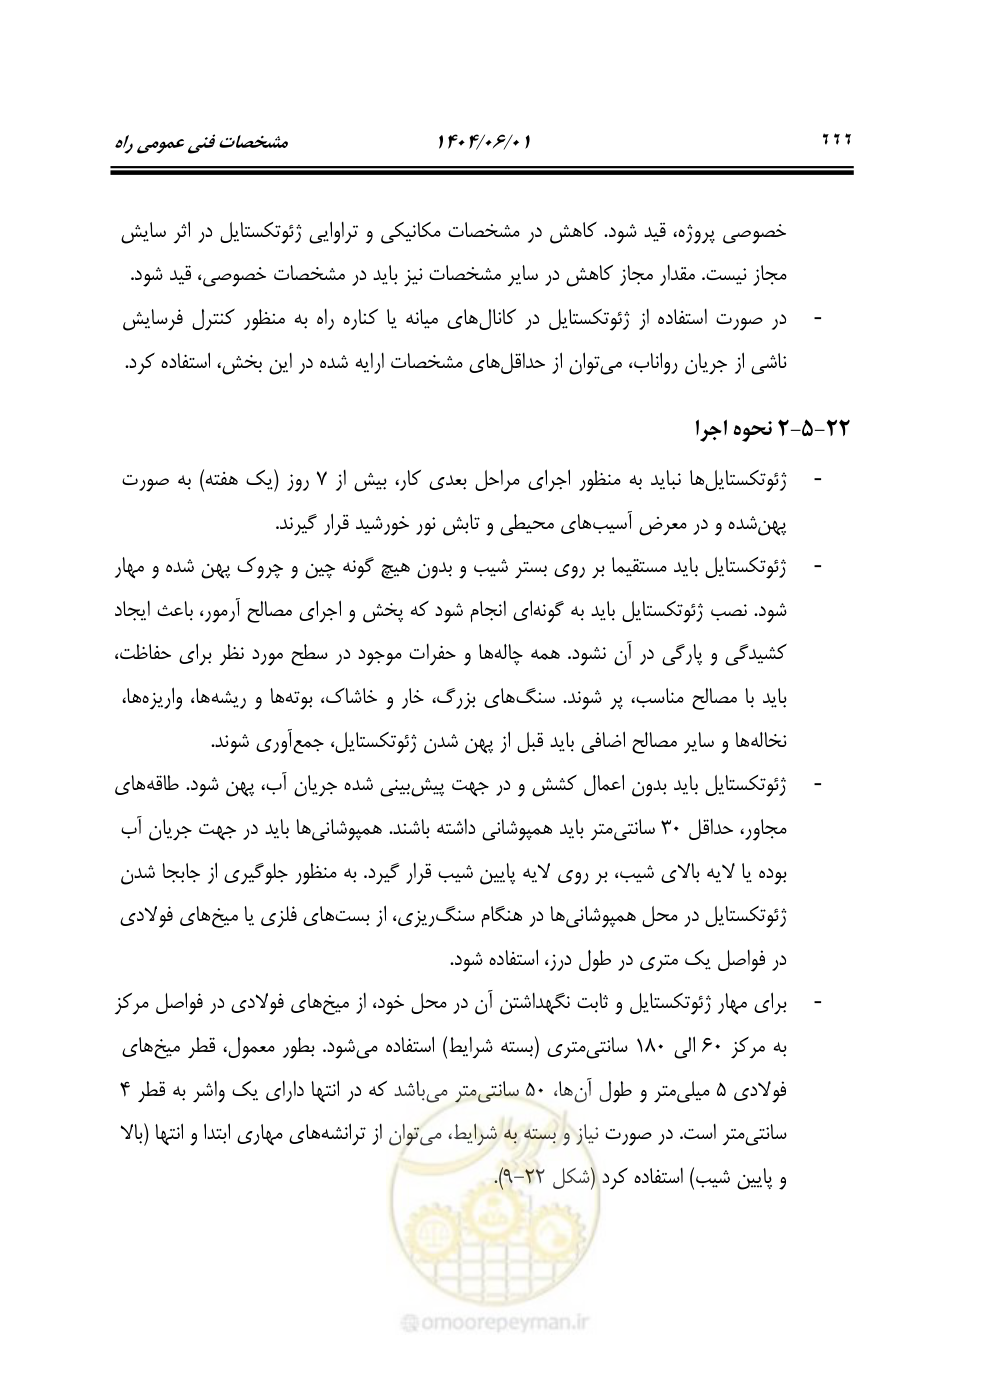 ۶۶۶ ۱۴۰۴/۰۶/۰۱ مشخصات فنی عمومی راه
خصوصی پروژه، قید شود. کاهش در مشخصات مکانیکی و تراوایی ژئوتکستایل در اثر سایش
مجاز نیست. مقدار مجاز کاهش در سایر مشخصات نیز باید در مشخصات خصوصی، قید شود.
- در صورت استفاده از ژئوتکستایل در کانال‌های میانه یا کناره راه به منظور کنترل فرسایش
ناشی از جریان رواناب، می‌توان از حداقل‌های مشخصات ارایه شده در این بخش، استفاده کرد.
۲۲-۵-۲ نحوه اجرا
- ژئوتکستایل‌ها نباید به منظور اجرای مراحل بعدی کار، بیش از ۷ روز (یک هفته) به صورت
پهن‌شده و در معرض آسیب‌های محیطی و تابش نور خورشید قرار گیرند.
- ژئوتکستایل باید مستقیما بر روی بستر شیب و بدون هیچ گونه چین و چروک پهن شده و مهار
شود. نصب ژئوتکستایل باید به گونه‌ای انجام شود که پخش و اجرای مصالح آرمور، باعث ایجاد
کشیدگی و پارگی در آن نشود. همه چاله‌ها و حفرات موجود در سطح مورد نظر برای حفاظت،
باید با مصالح مناسب، پر شوند. سنگ‌های بزرگ، خار و خاشاک، بوته‌ها و ریشه‌ها، واریزه‌ها،
نخاله‌ها و سایر مصالح اضافی باید قبل از پهن شدن ژئوتکستایل، جمع‌آوری شوند.
- ژئوتکستایل باید بدون اعمال کشش و در جهت پیش‌بینی شده جریان آب، پهن شود. طاقه‌های
مجاور، حداقل ۳۰ سانتی‌متر باید همپوشانی داشته باشند. همپوشانی‌ها باید در جهت جریان آب
بوده یا لایه بالای شیب، بر روی لایه پایین شیب قرار گیرد. به منظور جلوگیری از جابجا شدن
ژئوتکستایل در محل همپوشانی‌ها در هنگام سنگ‌ریزی، از بست‌های فلزی یا میخ‌های فولادی
در فواصل یک متری در طول درز، استفاده شود.
- برای مهار ژئوتکستایل و ثابت نگهداشتن آن در محل خود، از میخ‌های فولادی در فواصل مرکز
به مرکز ۶۰ الی ۱۸۰ سانتی‌متری (بسته شرایط) استفاده می‌شود. بطور معمول، قطر میخ‌های
فولادی ۵ میلی‌متر و طول آن‌ها، ۵۰ سانتی‌متر می‌باشد که در انتها دارای یک واشر به قطر ۴
سانتی‌متر است. در صورت نیاز و بسته به شرایط، می‌توان از ترانشه‌های مهاری ابتدا و انتها (بالا
و پایین شیب) استفاده کرد (شکل ۲۲-۹).
امور پیمان
@omoorepeyman.ir